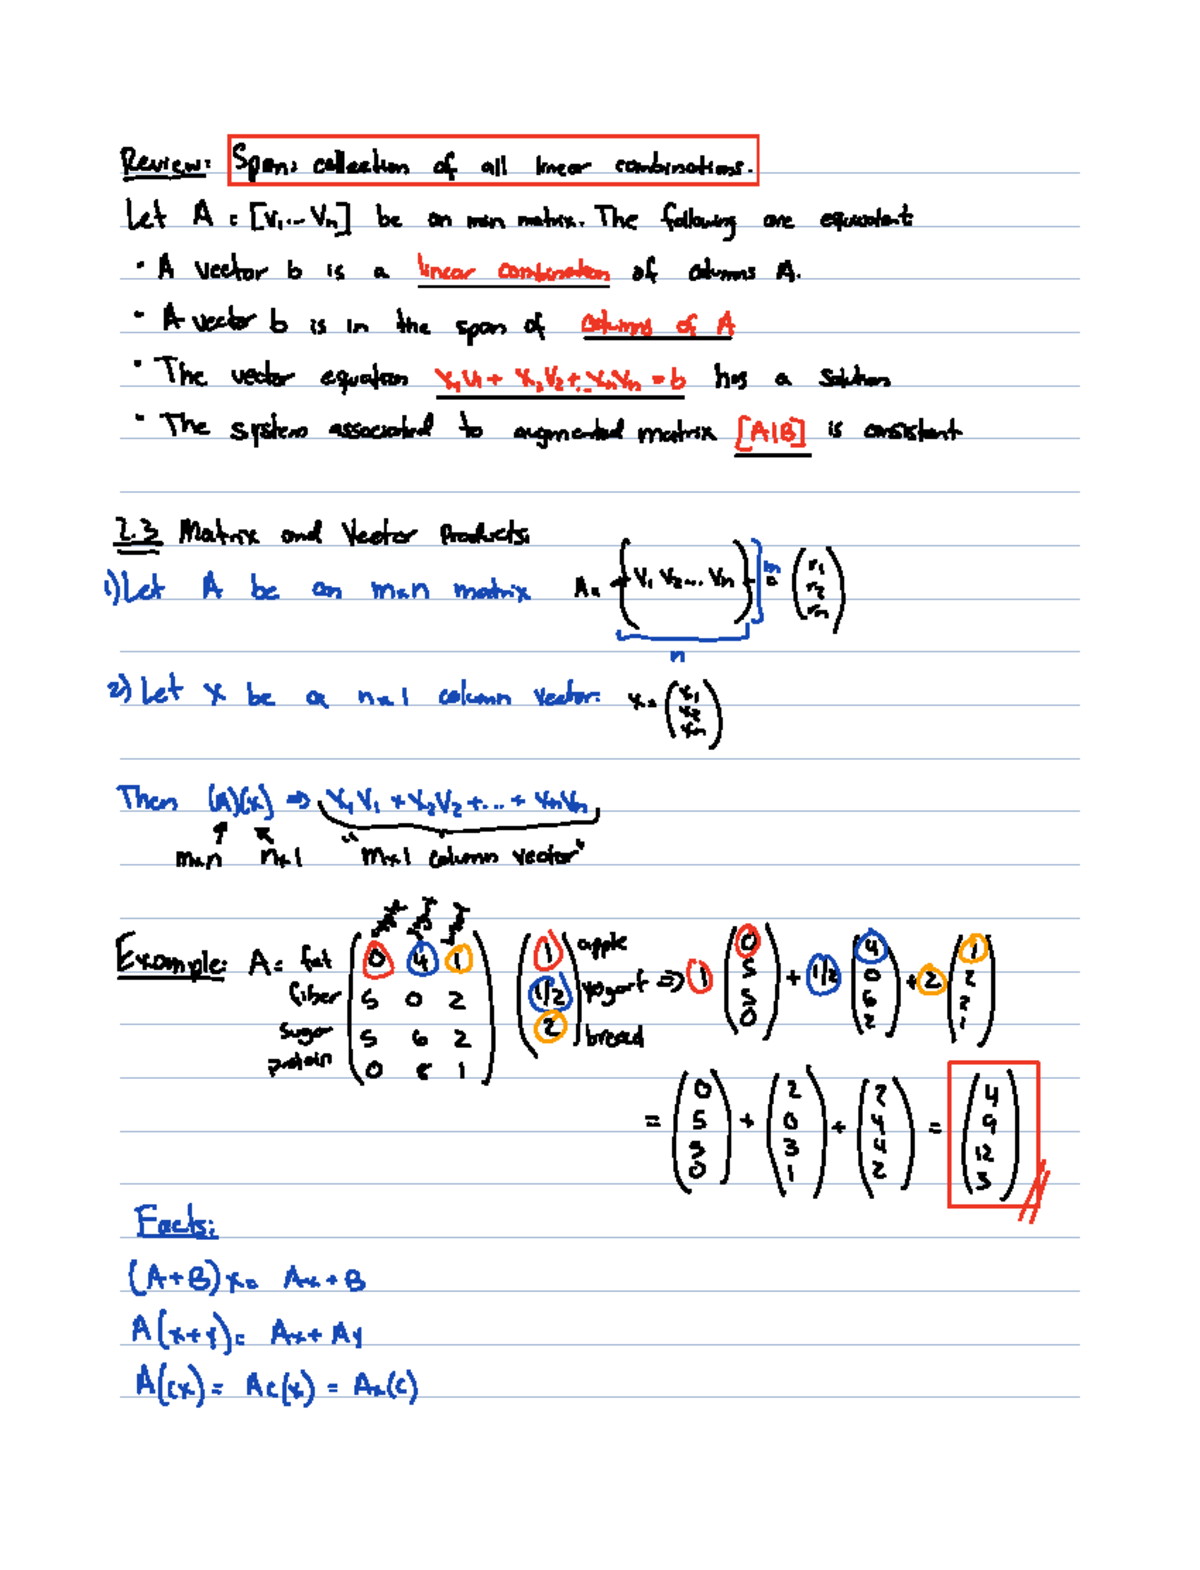 Review: Span: collection of all linear combinations.
Let A = [v₁... vₙ] be an mxn matrix. The following are equivalent
· A vector b is a linear combination of columns A.
· A vector b is in the span of columns of A
· The vector equation x₁v₁ + x₂v₂ + ... xₙvₙ = b has a solution
· The system associated to augmented matrix [A|B] is consistent
2.3 Matrix and Vector Products:
1) Let A be an mxn matrix A = ( v₁ v₂ ... vₙ ) m = ( r₁ r₂ rₘ )
n
2) Let x be a nx1 column vector: x = ( x₁ x₂ xₙ )
Then (A)(x) ⇒ x₁v₁ + x₂v₂ + ... + xₙvₙ
mxn nx1 "mx1 column vector"
Example: A = fat 0 4 1 ( 1 apple ⇒ 1 ( 0 + 1/2 ( 4 + 2 ( 1
fiber 5 0 2 1/2 yogurt 5 0 2
sugar 5 6 2 2 bread 5 6 2
protein 0 1 0 2 1
= ( 0 5 5 0 ) + ( 2 0 3 1 ) + ( 2 4 4 2 ) = ( 4 9 12 3 )
Facts:
(A+B)x = Ax + B
A(x+y) = Ax + Ay
A(cx) = Ac(x) = Ax(c)